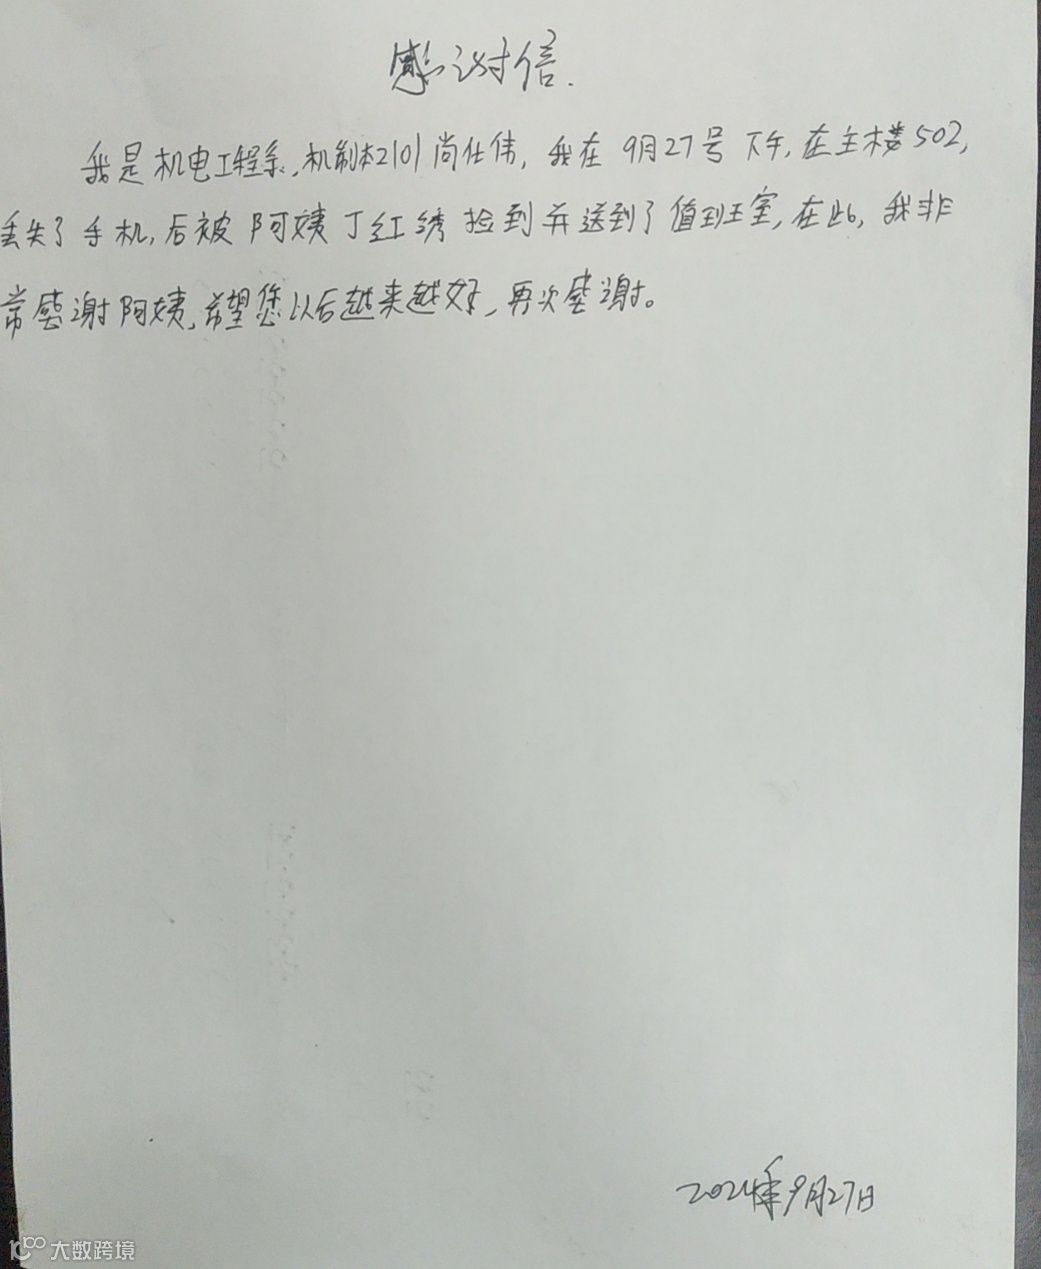 感谢信.
我是机电工程系,机制本2101尚仕伟,我在9月27号下午,在主楼502,
丢失了手机,后被阿姨丁红绣捡到并送到了值班室,在此,我非
常感谢阿姨,希望您以后越来越好,再次感谢。
2024年9月27日
大数跨境